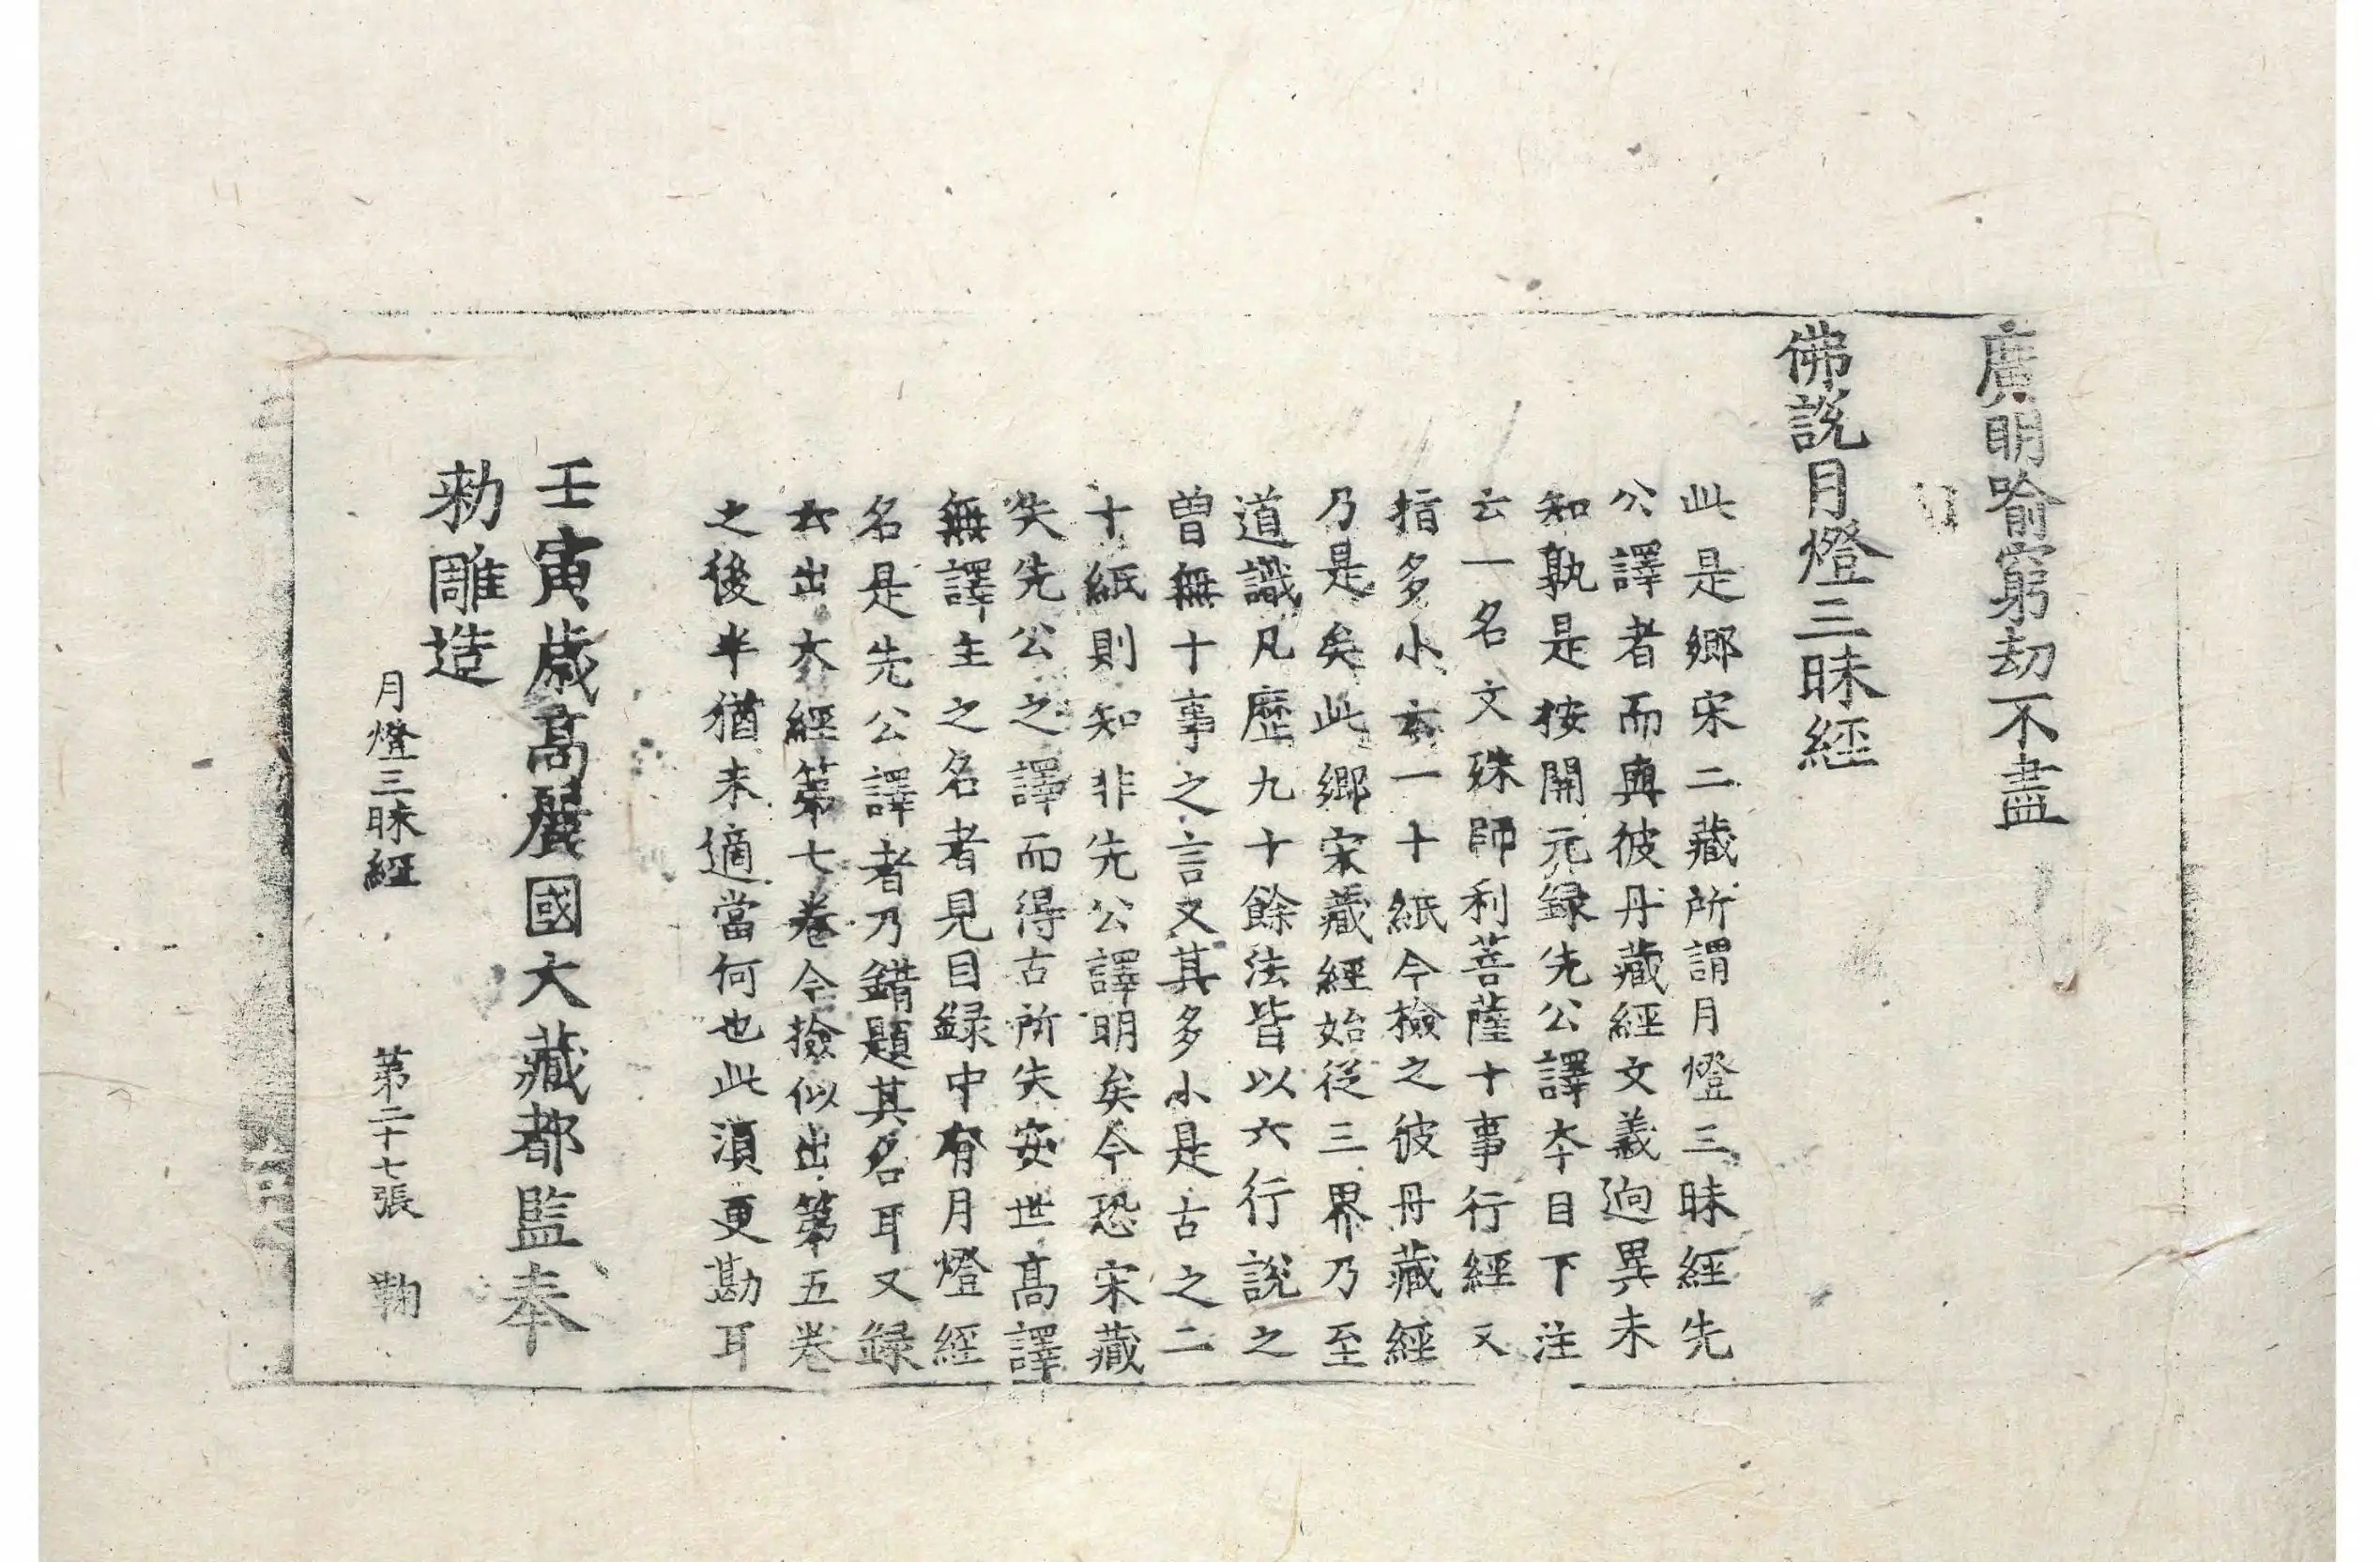 廣明喻窮劫不盡
佛說月燈三昧經
此是鄉宋二藏所謂月燈三昧經先
公譯者而與彼丹藏經文義逈異未
知孰是按開元録先公譯夲目下注
云一名文殊師利菩薩十事行經又
指多小云一十紙今撿之彼丹藏經
乃是矣此鄉宋藏經始從三界乃至
道識凡歷九十餘法皆以六行說之
曽無十事之言又其多小是古之二
十紙則知非先公譯明矣今恐宋藏
失先公之譯而得古所失安世高譯
無譯主之名者見目録中有月燈經
名是先公譯者乃錯題其名耳又録
云出大經第七卷今撿似出第五卷
之後半猶未適當何也此湏更勘耳
壬寅歳高麗國大藏都監奉
勑雕造
月燈三昧經 第二十七張 鞠